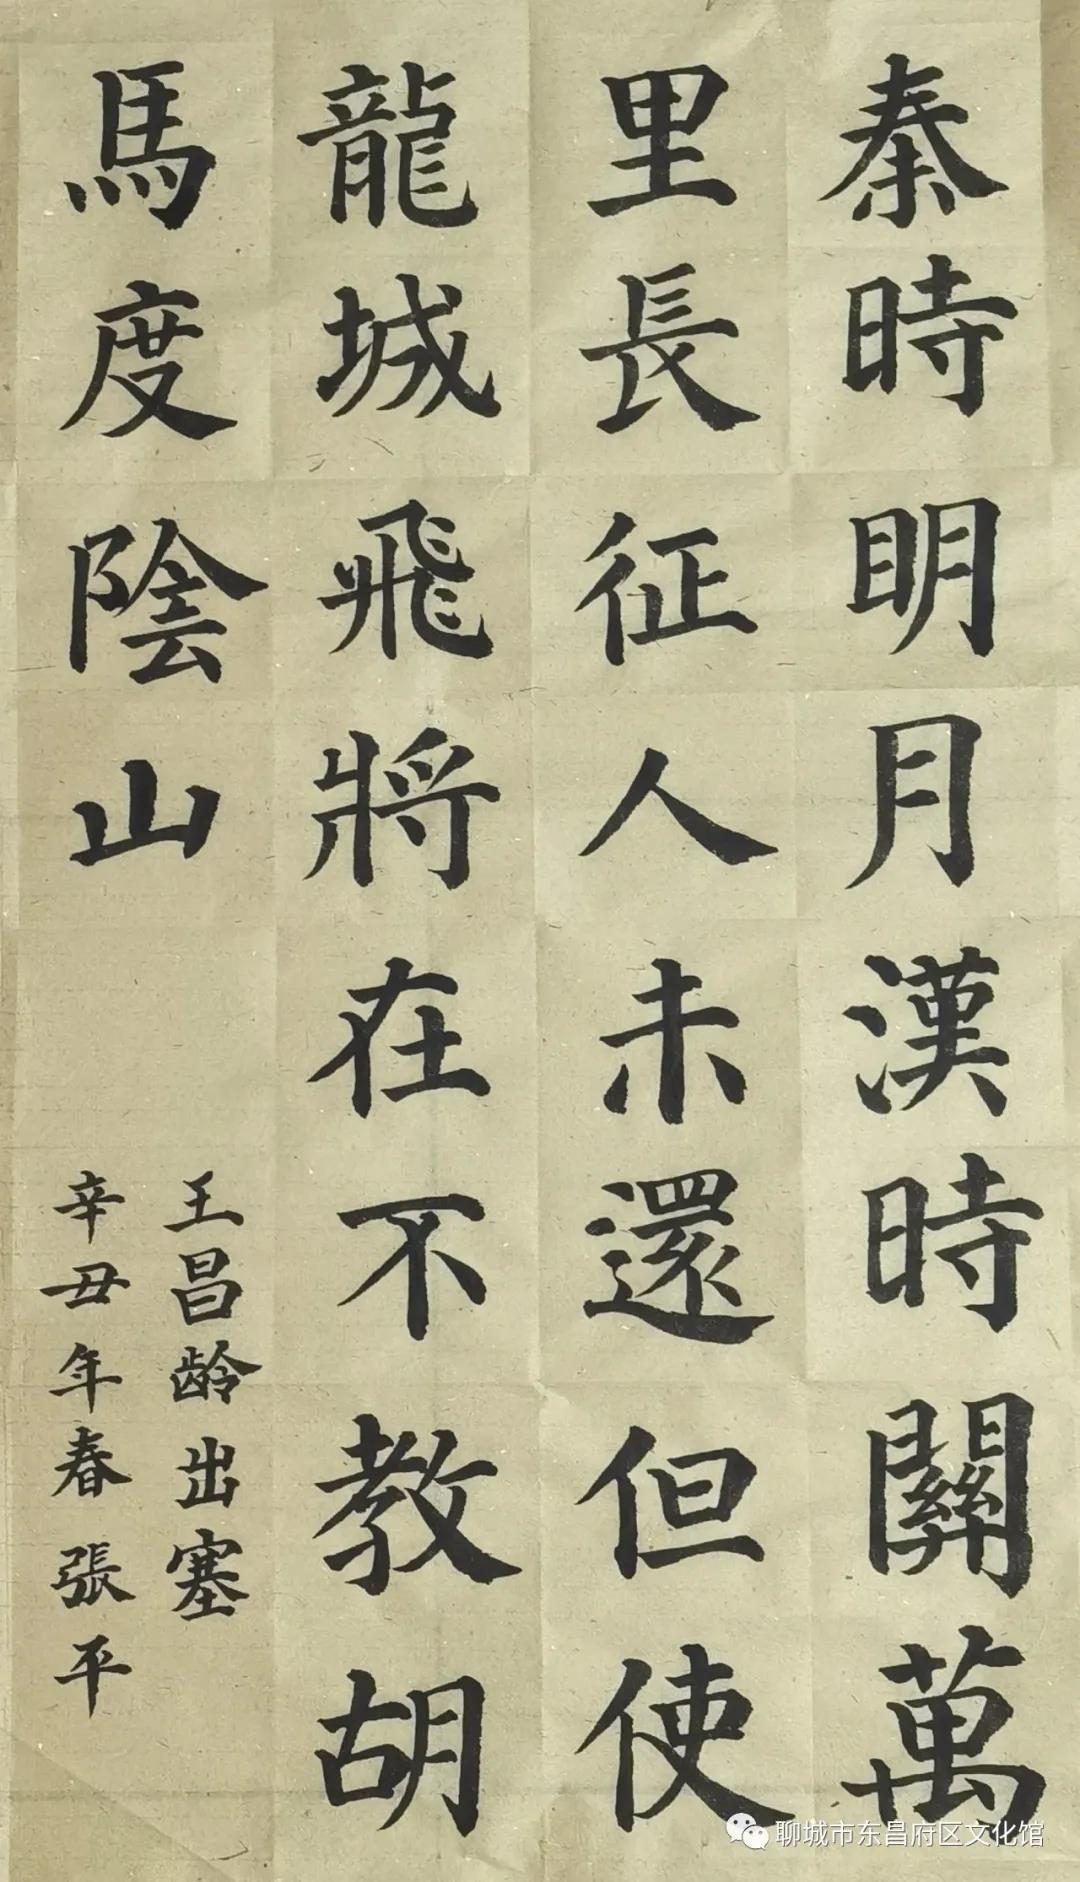 秦時明月漢時關萬
里長征人未還但使
龍城飛將在不教胡
馬度陰山
王昌龄出塞
辛丑年春張平
聊城市东昌府区文化馆